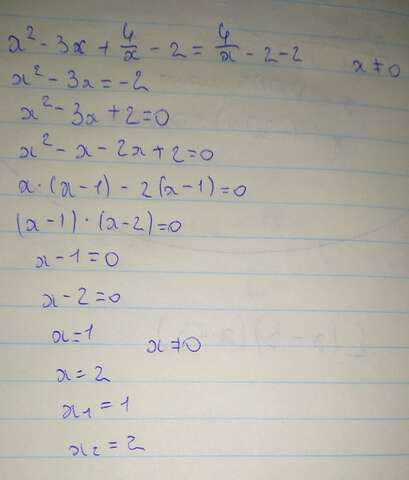 x² - 3x + 4/x - 2 = 4/x - 2 - 2 x ≠ 0
x² - 3x = -2
x² - 3x + 2 = 0
x² - x - 2x + 2 = 0
x · (x - 1) - 2(x - 1) = 0
(x - 1) · (x - 2) = 0
x - 1 = 0
x - 2 = 0
x = 1 x ≠ 0
x = 2
x₁ = 1
x₂ = 2